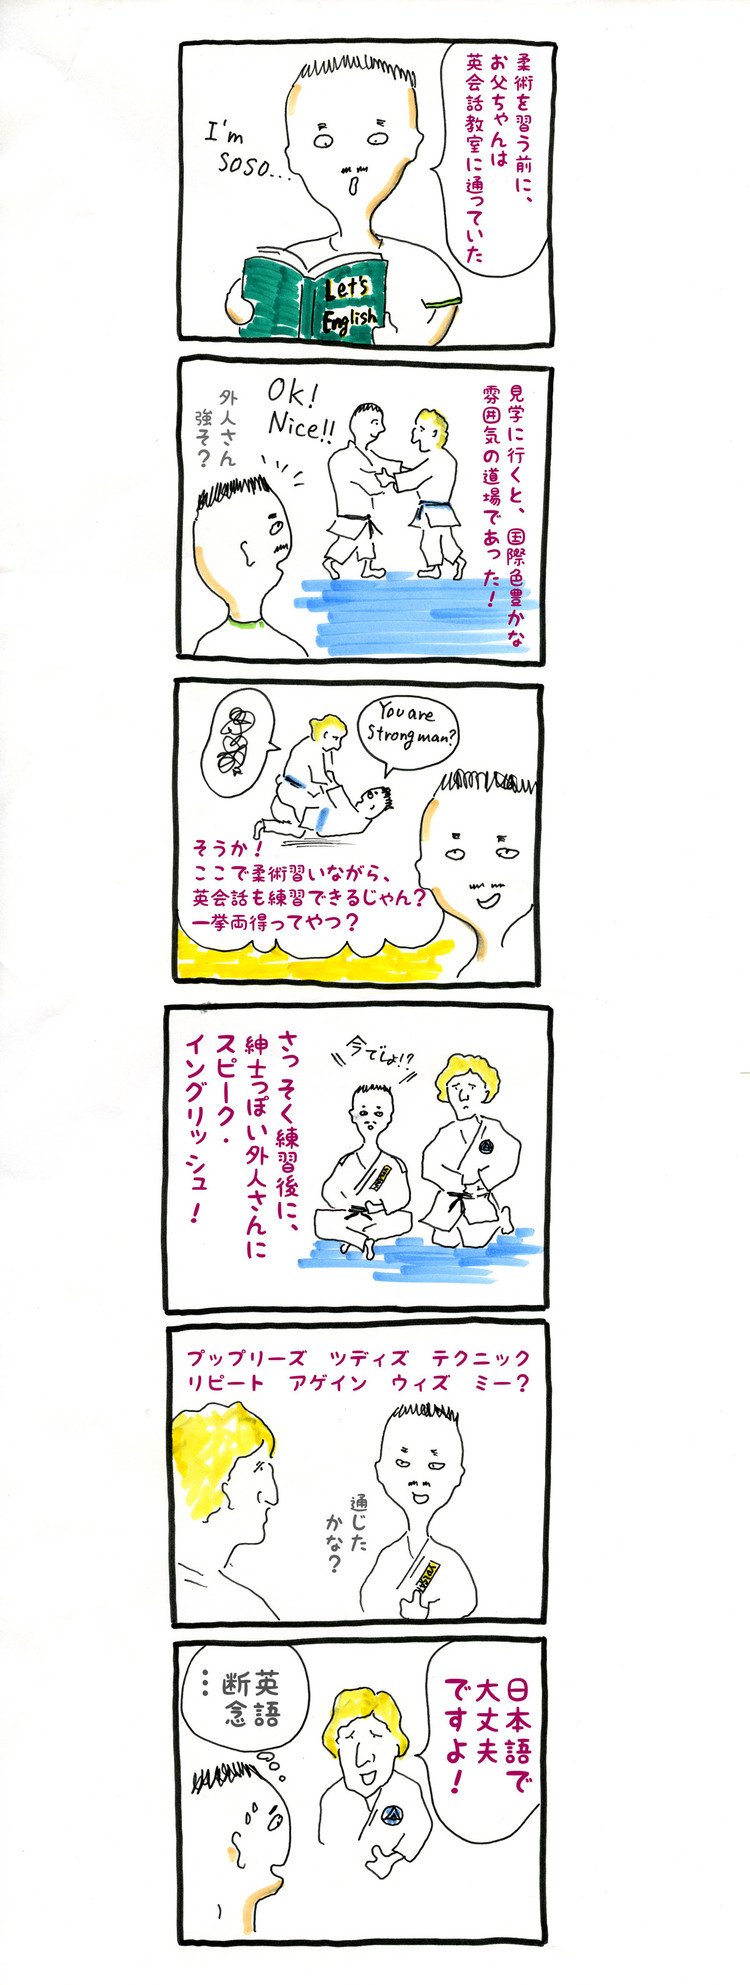 柔術を習う前に、
お父ちゃんは
英会話教室に通っていた
I'm
soso...
Let's
English
見学に行くと、国際色豊かな
雰囲気の道場であった!
Ok!
Nice!!
外人さん
強そ?
You are
Strong man?
そうか!
ここで柔術習いながら、
英会話も練習できるじゃん?
一挙両得ってやつ?
今でしょ!?
さっそく練習後に、
紳士っぽい外人さんに
スピーク・
イングリッシュ!
プップリーズ ツディズ テクニック
リピート アゲイン ウィズ ミー?
通じた
かな?
日本語で
大丈夫
ですよ!
英語
断念
…